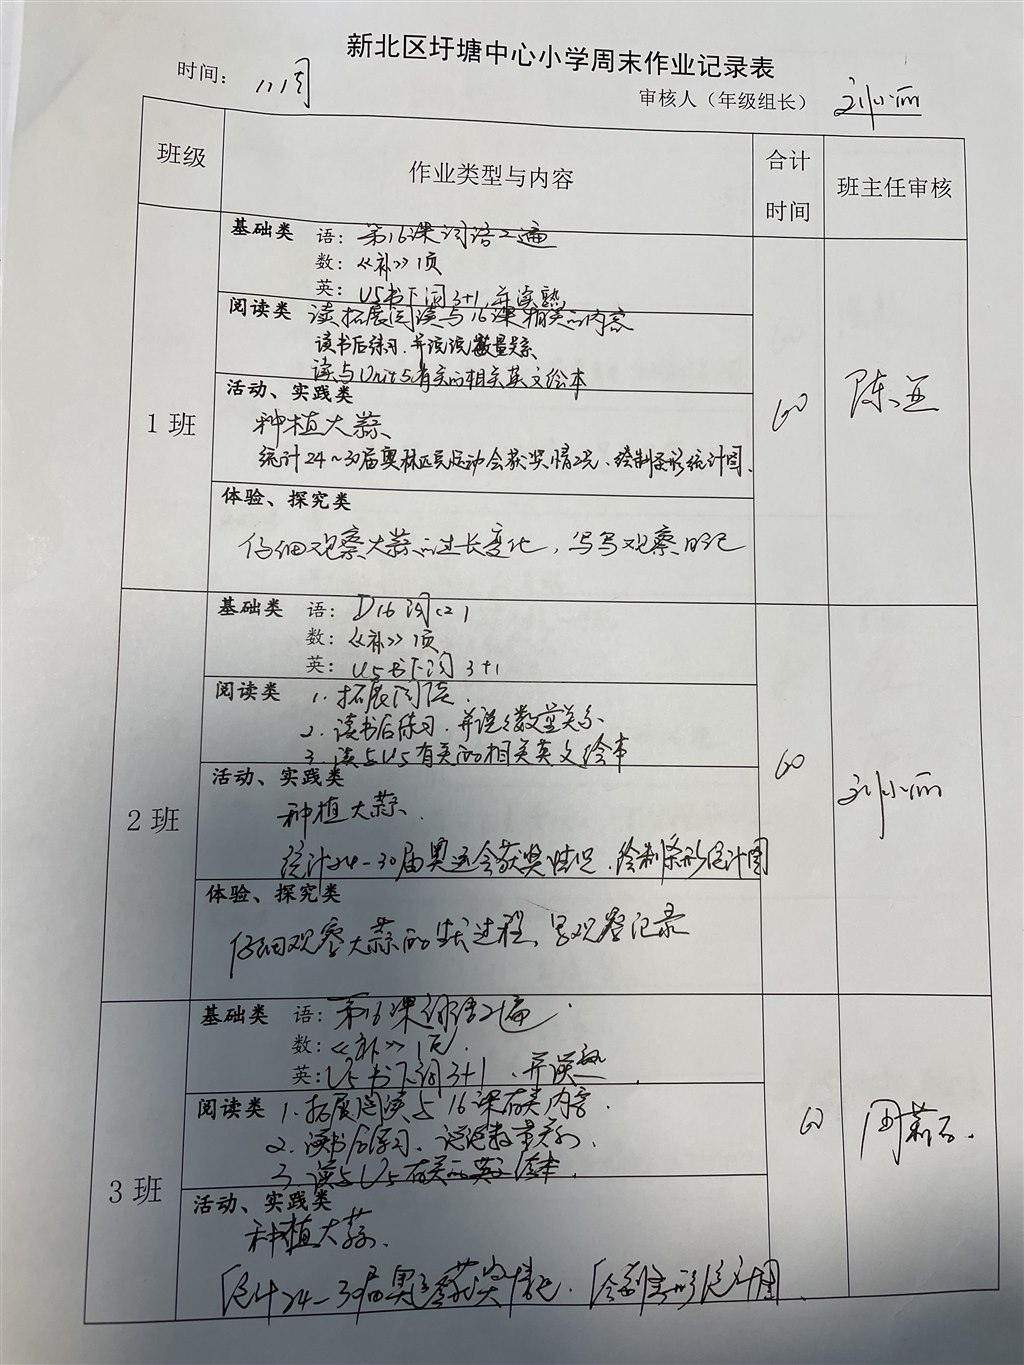 新北区圩塘中心小学周末作业记录表
时间： 11周
审核人（年级组长） 刘小丽
班级 作业类型与内容 合计时间 班主任审核
1班
基础类 语： 第16课词语2遍
数：《补》1页
英： U5书下词3+1，并读熟
阅读类 读拓展阅读与16课相关的内容
读书后练习，并说说数量关系
读与Unit5有关的相关英文绘本
活动、实践类
种植大蒜
统计24~30届奥林匹克运动会获奖情况、绘制条形统计图.
体验、探究类
仔细观察大蒜的过长变化，写写观察日记
60 陈
2班
基础类 语： D16词
数：《补》1页
英： U5书下词3+1
阅读类 1.拓展阅读.
2.读书后练习，并说说数量关系
3.读与U5有关的相关英文绘本
活动、实践类
种植大蒜.
统计24-30届奥运会获奖情况、绘制条形统计图
体验、探究类
仔细观察大蒜的生长过程，写观察记录
60 刘小丽
3班
基础类 语： 第16课词语2遍.
数：《补》1页.
英： U5书下词3+1，并读熟.
阅读类 1.拓展阅读与16课有关内容.
2.读书后练习，说说数量关系.
3.读与U5有关的英文绘本.
活动、实践类
种植大蒜.
统计24-30届奥运会获奖情况.绘制条形统计图.
60 周